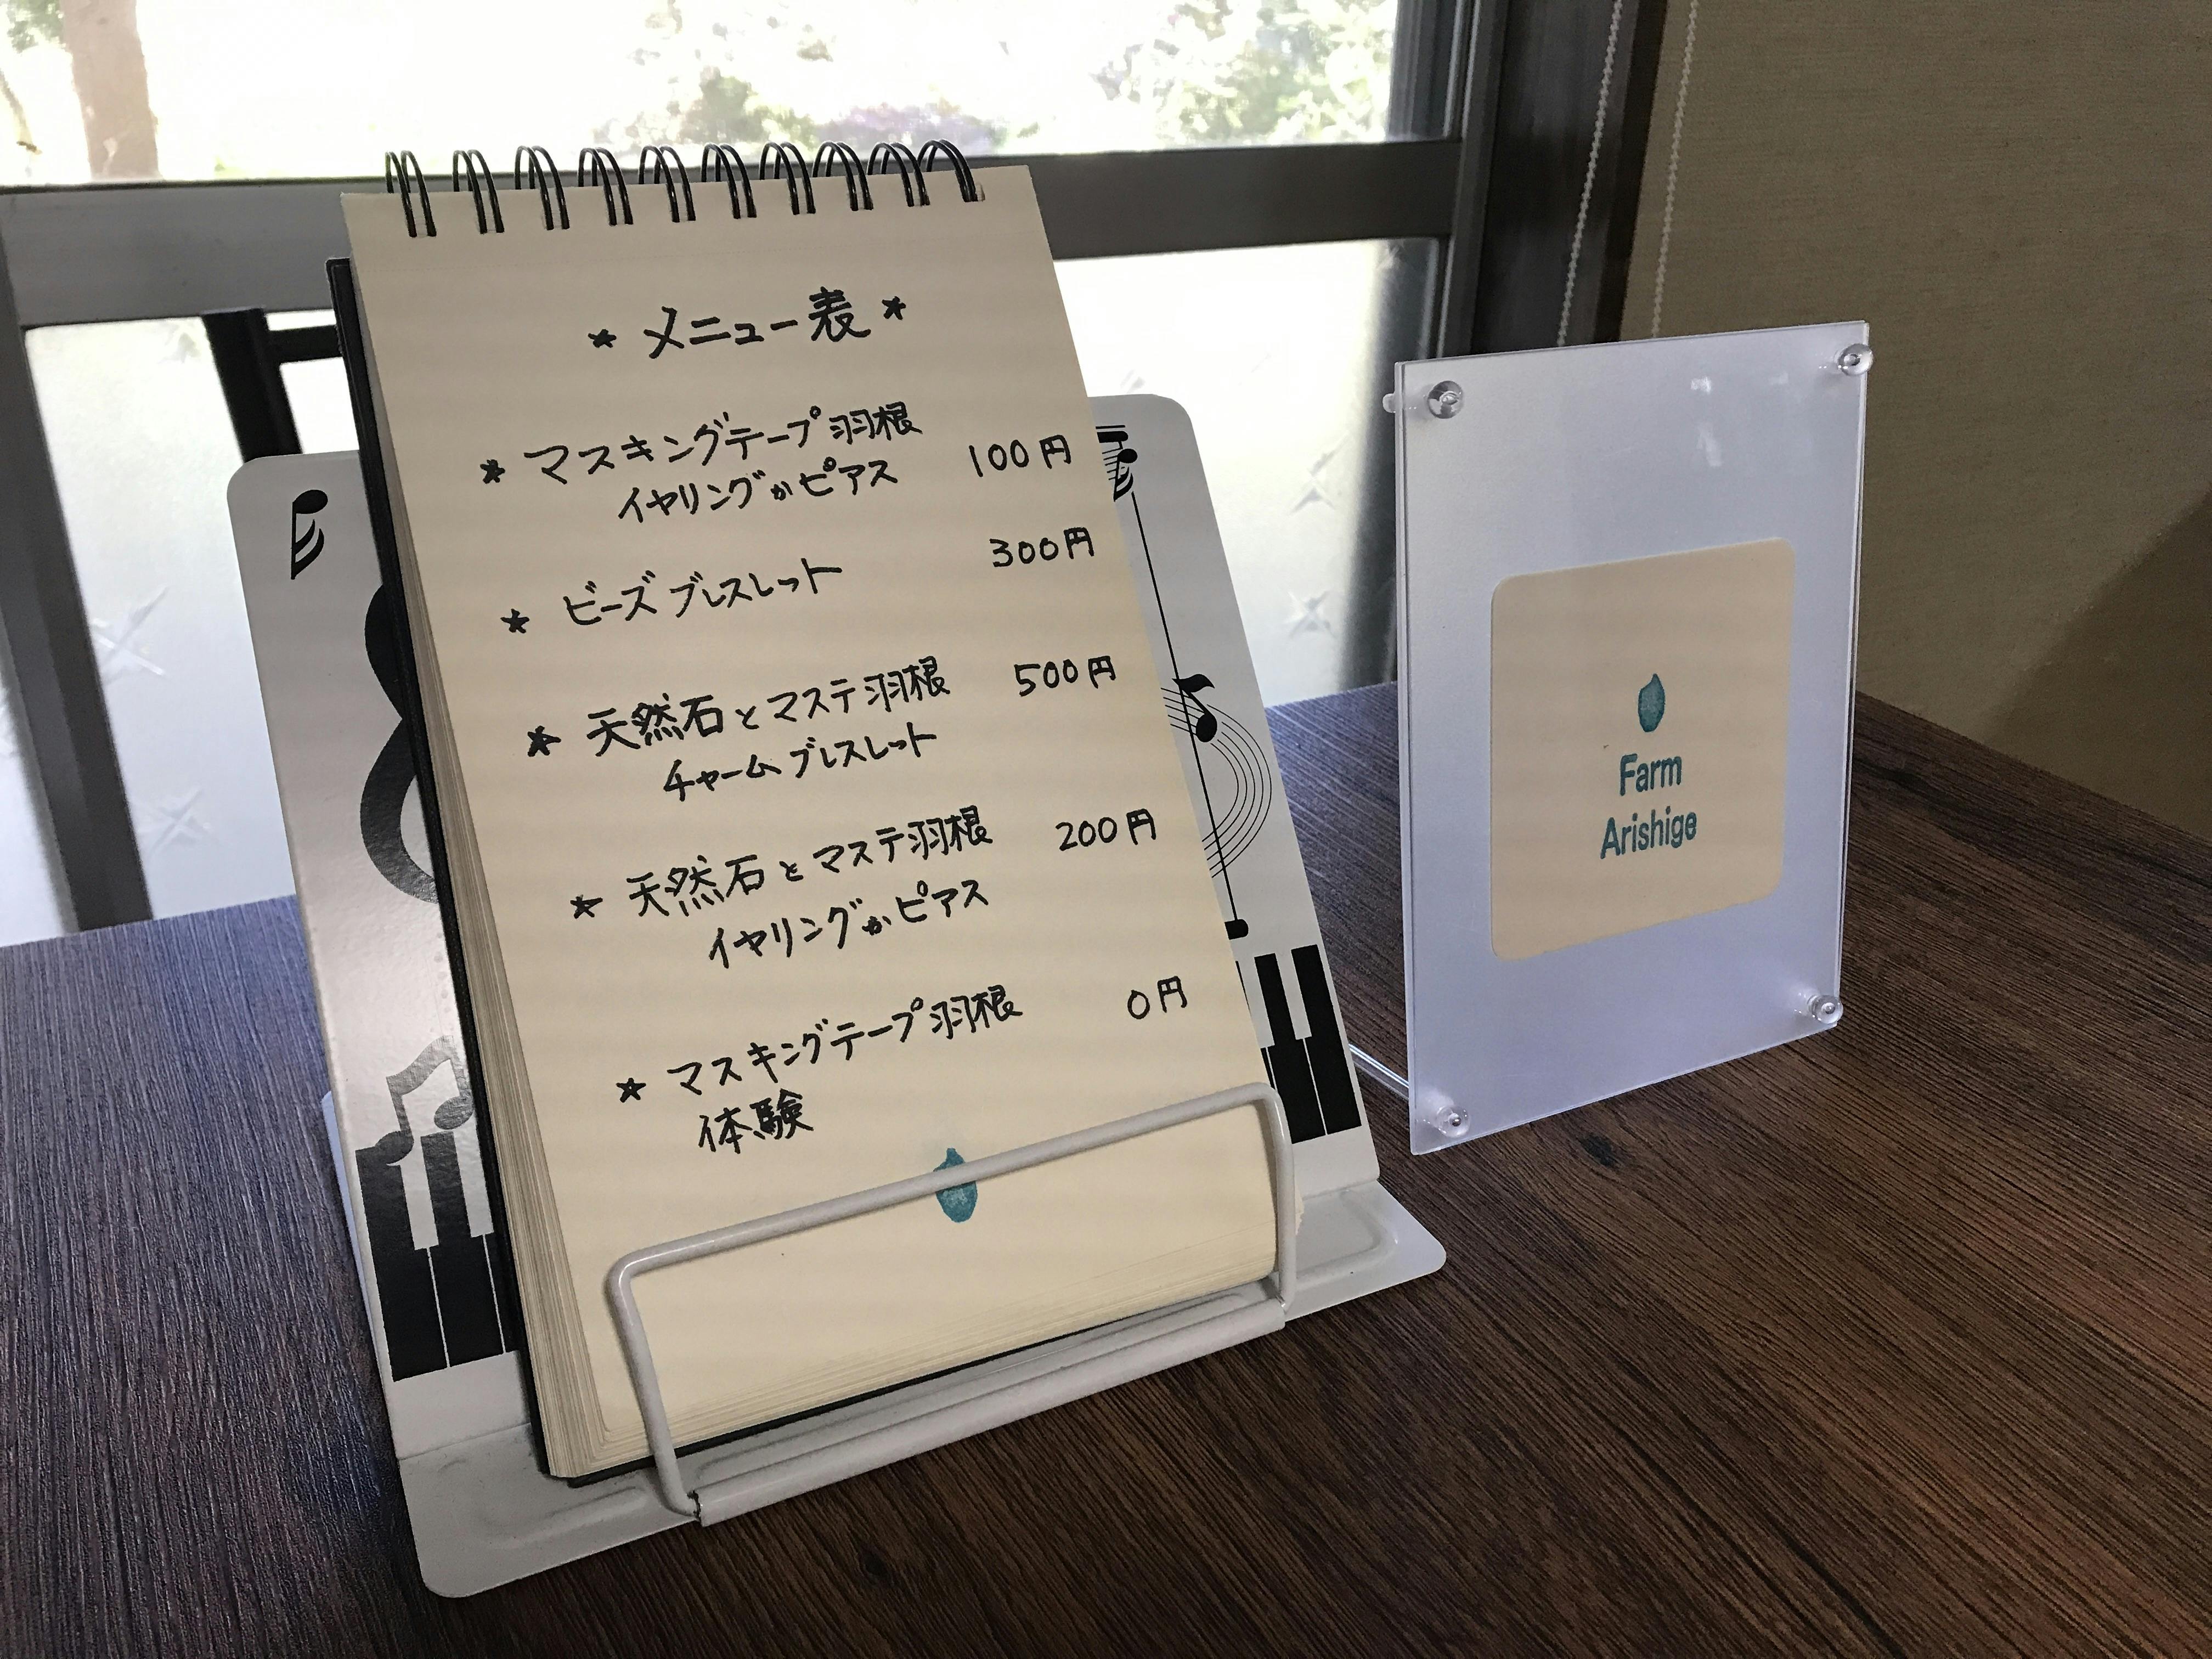 * メニュー表 *
* マスキングテープ羽根 100円
イヤリングかピアス
* ビーズブレスレット 300円
* 天然石とマステ羽根 500円
チャームブレスレット
* 天然石とマステ羽根 200円
イヤリングかピアス
* マスキングテープ羽根 0円
体験
Farm
Arishige